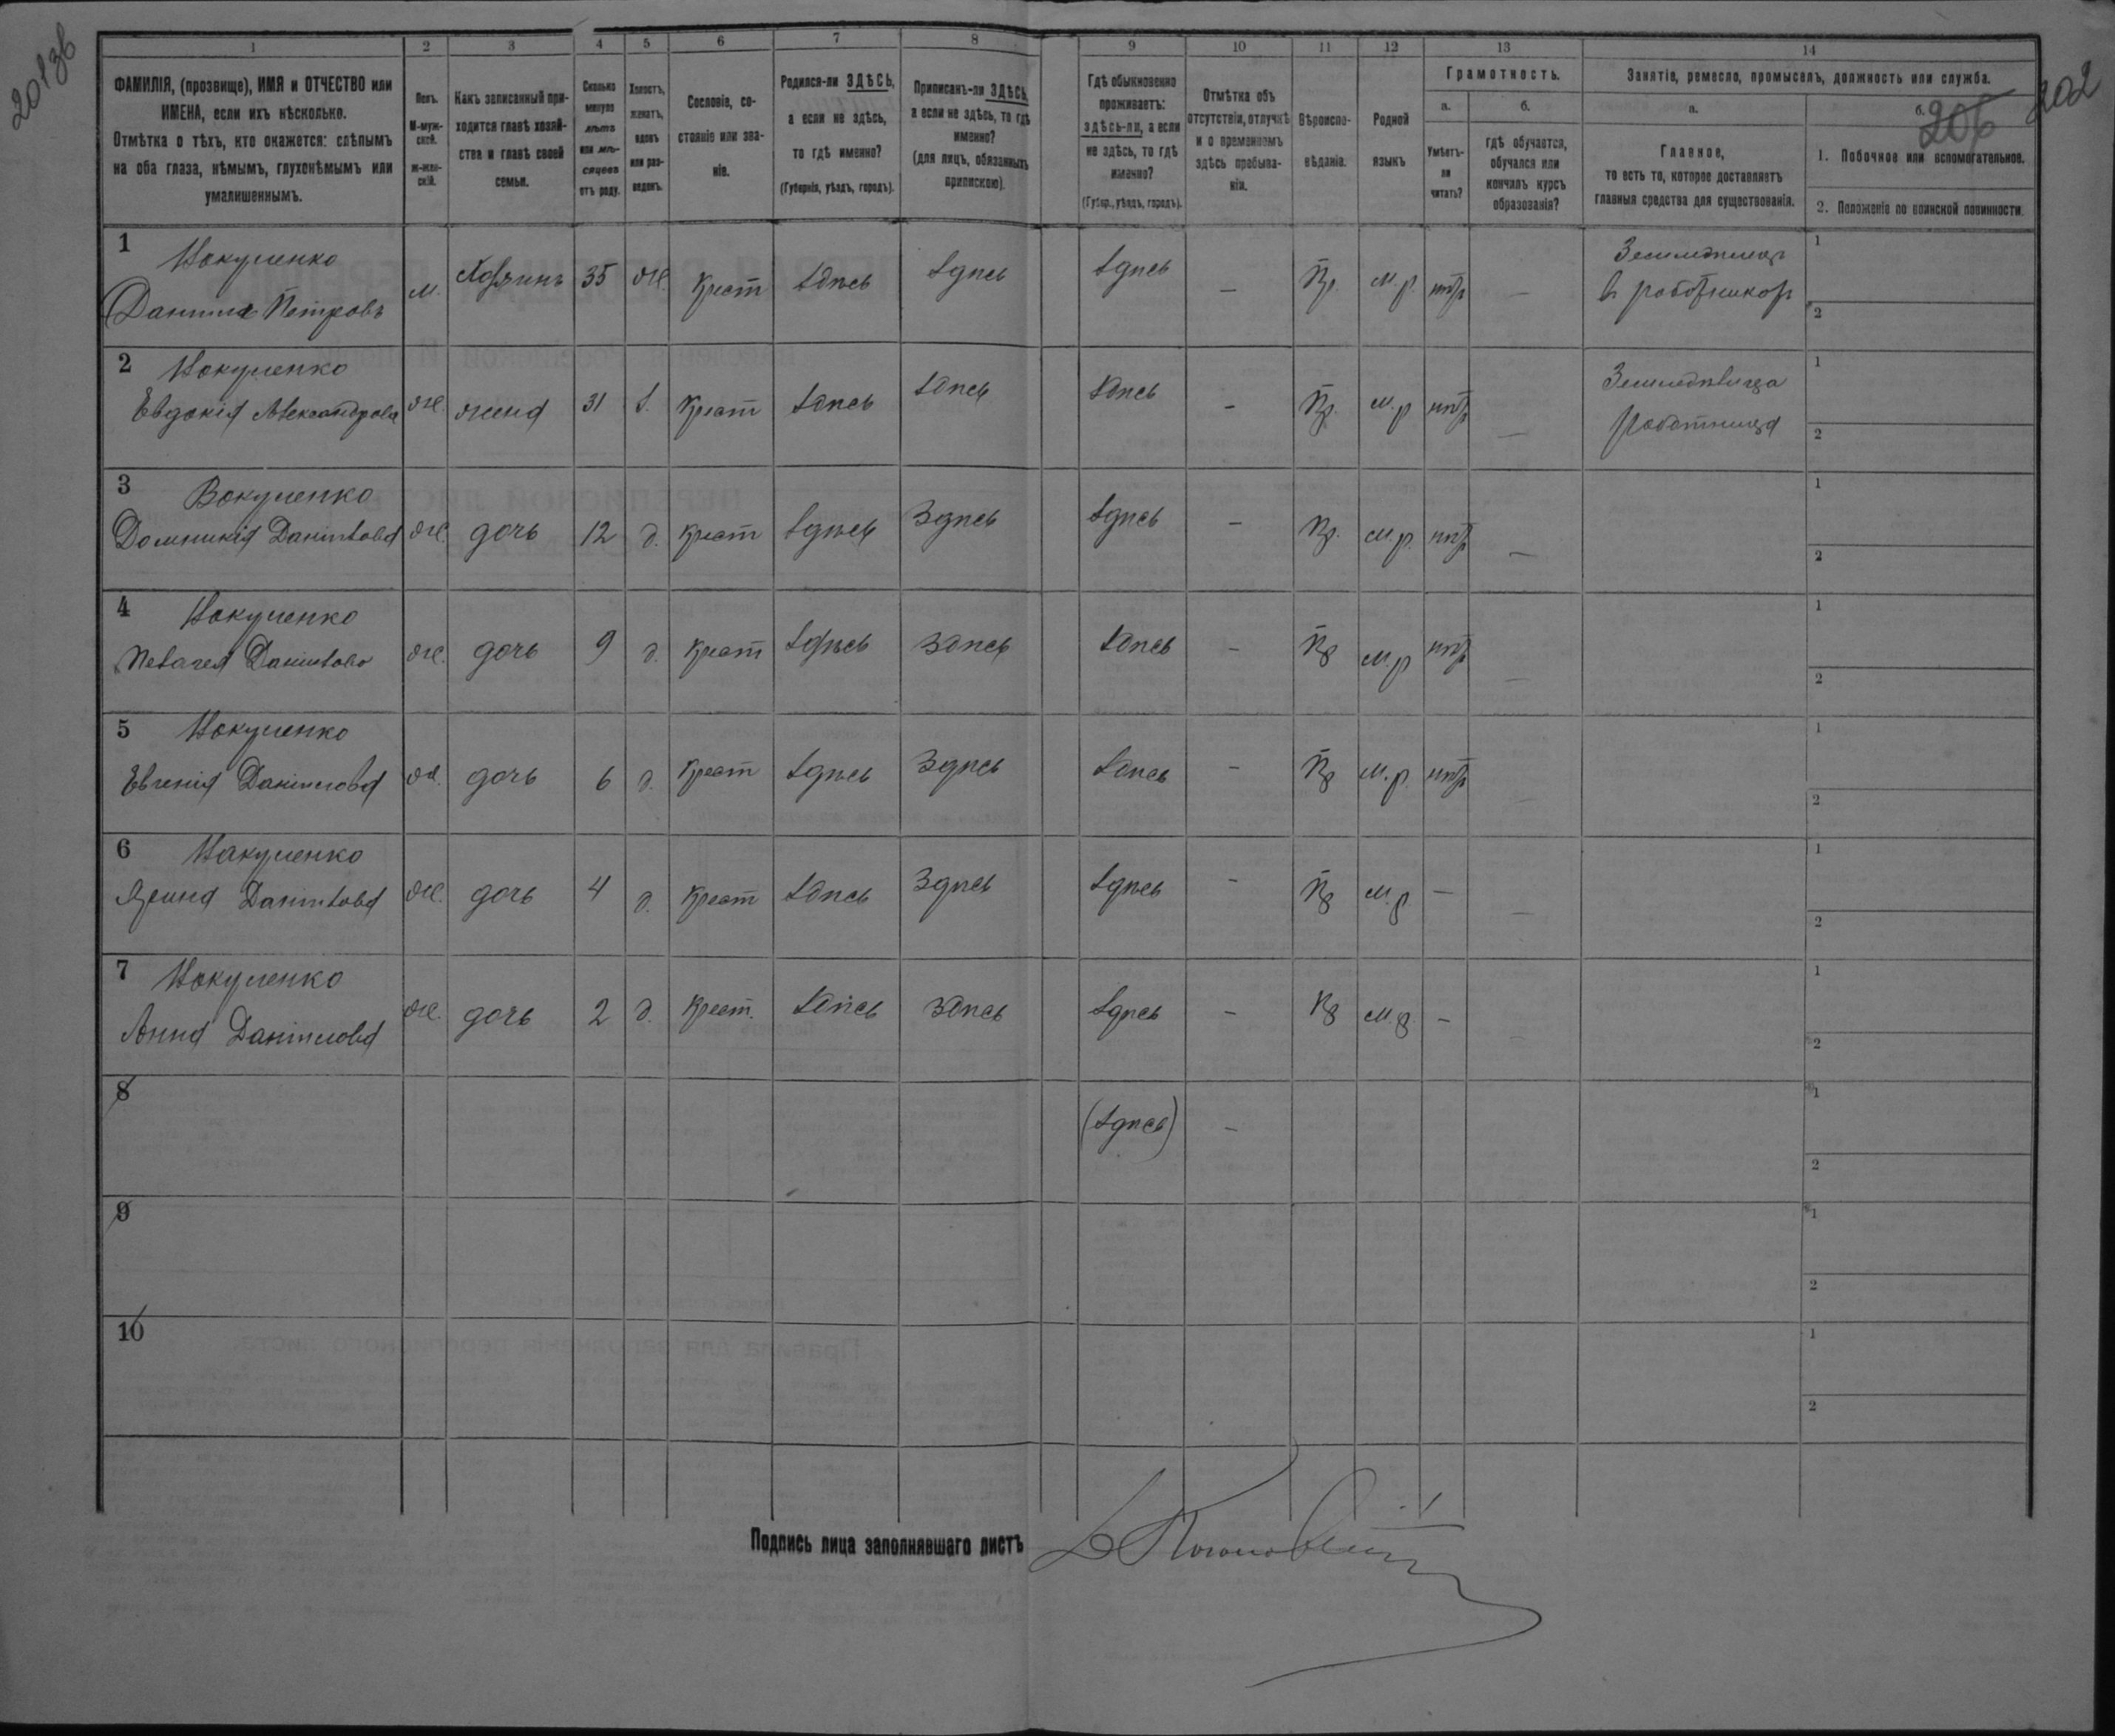 201зв
202
206
1 2 3 4 5 6 7 8 9 10 11 12 13 14
ФАМИЛІЯ, (прозвище), ИМЯ и ОТЧЕСТВО или
ИМЕНА, если ихъ нѣсколько.
Отмѣтка о тѣхъ, кто окажется: слѣпымъ
на оба глаза, нѣмымъ, глухонѣмымъ или
умалишеннымъ.
Полъ.
М-муж-
ской.
ж-жен-
скій.
Какъ записанный при-
ходится главѣ хозяй-
ства и главѣ своей
семьи.
Сколько
минуло
лѣтъ
или мѣ-
сяцевъ
отъ роду.
Холостъ,
женатъ,
вдовъ
или раз-
веденъ.
Сословіе, со-
стояніе или зва-
ніе.
Родился-ли ЗДѢСЬ,
а если не здѣсь,
то гдѣ именно?
(Губернія, уѣздъ, городъ).
Приписанъ-ли ЗДѢСЬ,
а если не здѣсь, то гдѣ
именно?
(для лицъ, обязанныхъ
припискою).
Гдѣ обыкновенно
проживаетъ:
здѣсь-ли, а если
не здѣсь, то гдѣ
именно?
(Губер., уѣздъ, городъ).
Отмѣтка объ
отсутствіи, отлучкѣ
и о временномъ
здѣсь пребыва-
ніи.
Вѣроиспо-
вѣданіе.
Родной
языкъ
Грамотность.
а.
Умѣетъ-
ли
читать?
б.
гдѣ обучается,
обучался или
кончилъ курсъ
образованія?
Занятіе, ремесло, промыселъ, должность или служба.
а.
Главное,
то есть то, которое доставляетъ
главныя средства для существованія.
б.
1. Побочное или вспомогательное.
2. Положеніе по воинской повинности.
1 Вакуленко
Данило Петровъ м. Хозяинъ 35 ж. Крест здѣсь здѣсь здѣсь — Пр. м.р. нѣтъ —
1
2
2 Вакуленко
Евдокія Александрова ж. жена 31 з. Крест здѣсь здѣсь здѣсь - Пр. м.р нѣтъ —
Работница
1
2
3 Вакуленко
Домникія Данилова ж. дочь 12 д. Крест здѣсь Здѣсь здѣсь - Пр. м.р. нѣтъ —
1
2
4 Вакуленко
Пелагея Данилова ж. дочь 9 д. Крест здѣсь здѣсь здѣсь - Пр м.р нѣтъ —
1
2
5 Вакуленко
Евгенія Данилова ж. дочь 6 д. Крест здѣсь Здѣсь здѣсь - Пр м.р. нѣтъ —
1
2
6 Вакуленко
Ярина Данилова ж. дочь 4 д. Крест здѣсь Здѣсь здѣсь - Пр м.р. — —
1
2
7 Вакуленко
Анна Данилова ж. дочь 2 д. Крест. здѣсь здѣсь здѣсь - Пр м.р. - —
1
2
8 (здѣсь) -
1
2
9
1
2
10
1
2
Подпись лица заполнявшаго листъ